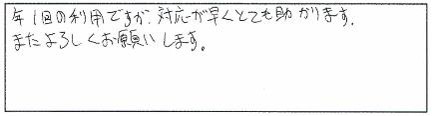 年1回の利用ですが、対応が早くとても助かります。
またよろしくお願いします。